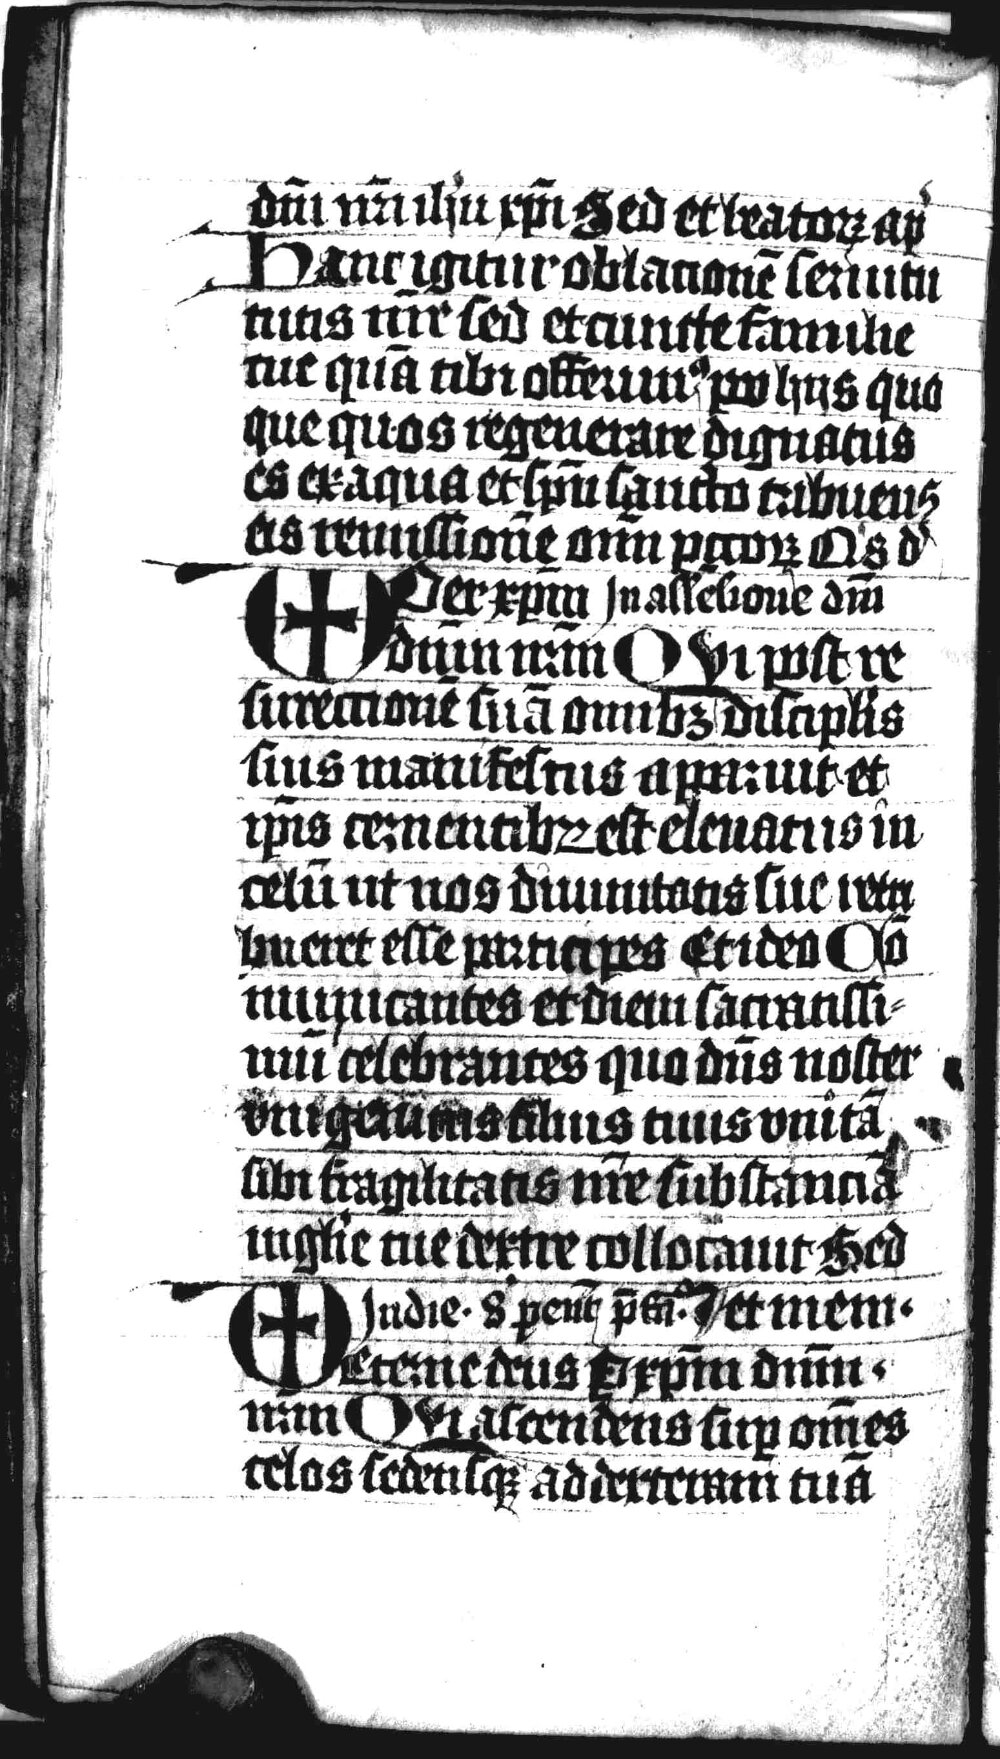 dn̄i nr̄i ih̄u xp̄i Sed et beatoꝝ ap̄
Hanc igitur oblacionē seruitu
tutis nr̄e sed et cuncte familie
tue quā tibi offerimꝰ ꝓ hijs quo
que quos regenerare dignatus
es ex aqua et sp̄u sancto tribuens
eis remissionē om̄i pc̄coꝝ Q's d'
Per xp̄m In asc̄ēsione dn̄i
dn̄m nr̄m Qui post re
surrectionē suā omnibꝫ discipl̄is
suis manifestus apparuit et
ip̄is cernentibꝫ est eleuatus in
celū ut nos diuinitatis sue tribu
bueret esse participes Et ideo Cō
municantes et diem sacratissi-
mū celebrantes quo dn̄s noster
vnigenitus filius tuus vnitā
sibi fragilitatis nr̄e substanciā
in gl'ie tue dextre collocauit Sed
In die S penth̄ p̄fa. et in em.
Eterne deus P xp̄m dn̄m
nr̄m Qui ascendens suꝑ om̄es
celos sedensqꝫ ad dexteram tuā